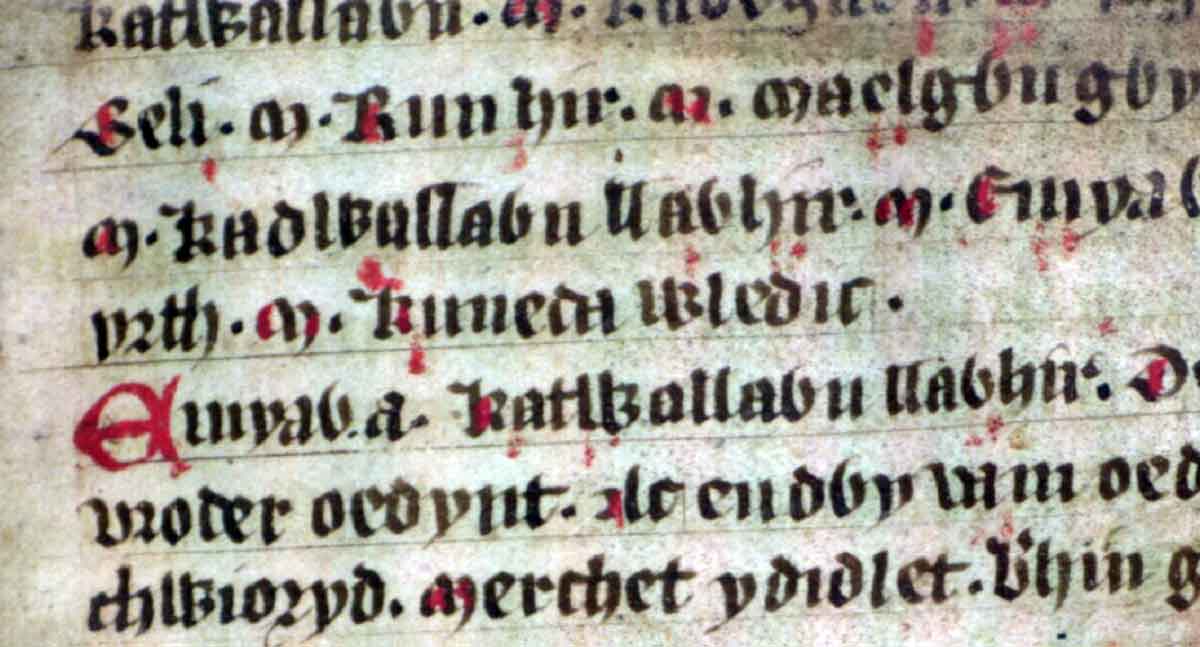 katwallaỽn . m .
Beli . m . Run hir . m . maelgỽn gỽy
m . kadwallaỽn llaỽhir . m . Einyaỽ
yrth . m . kuneda wledic .
Einyaỽ . a . katwallaỽn llaỽhir . D
vroder oedynt . Ac eu dỽy vam oed
chwioryd . merchet y didlet . Vhin g